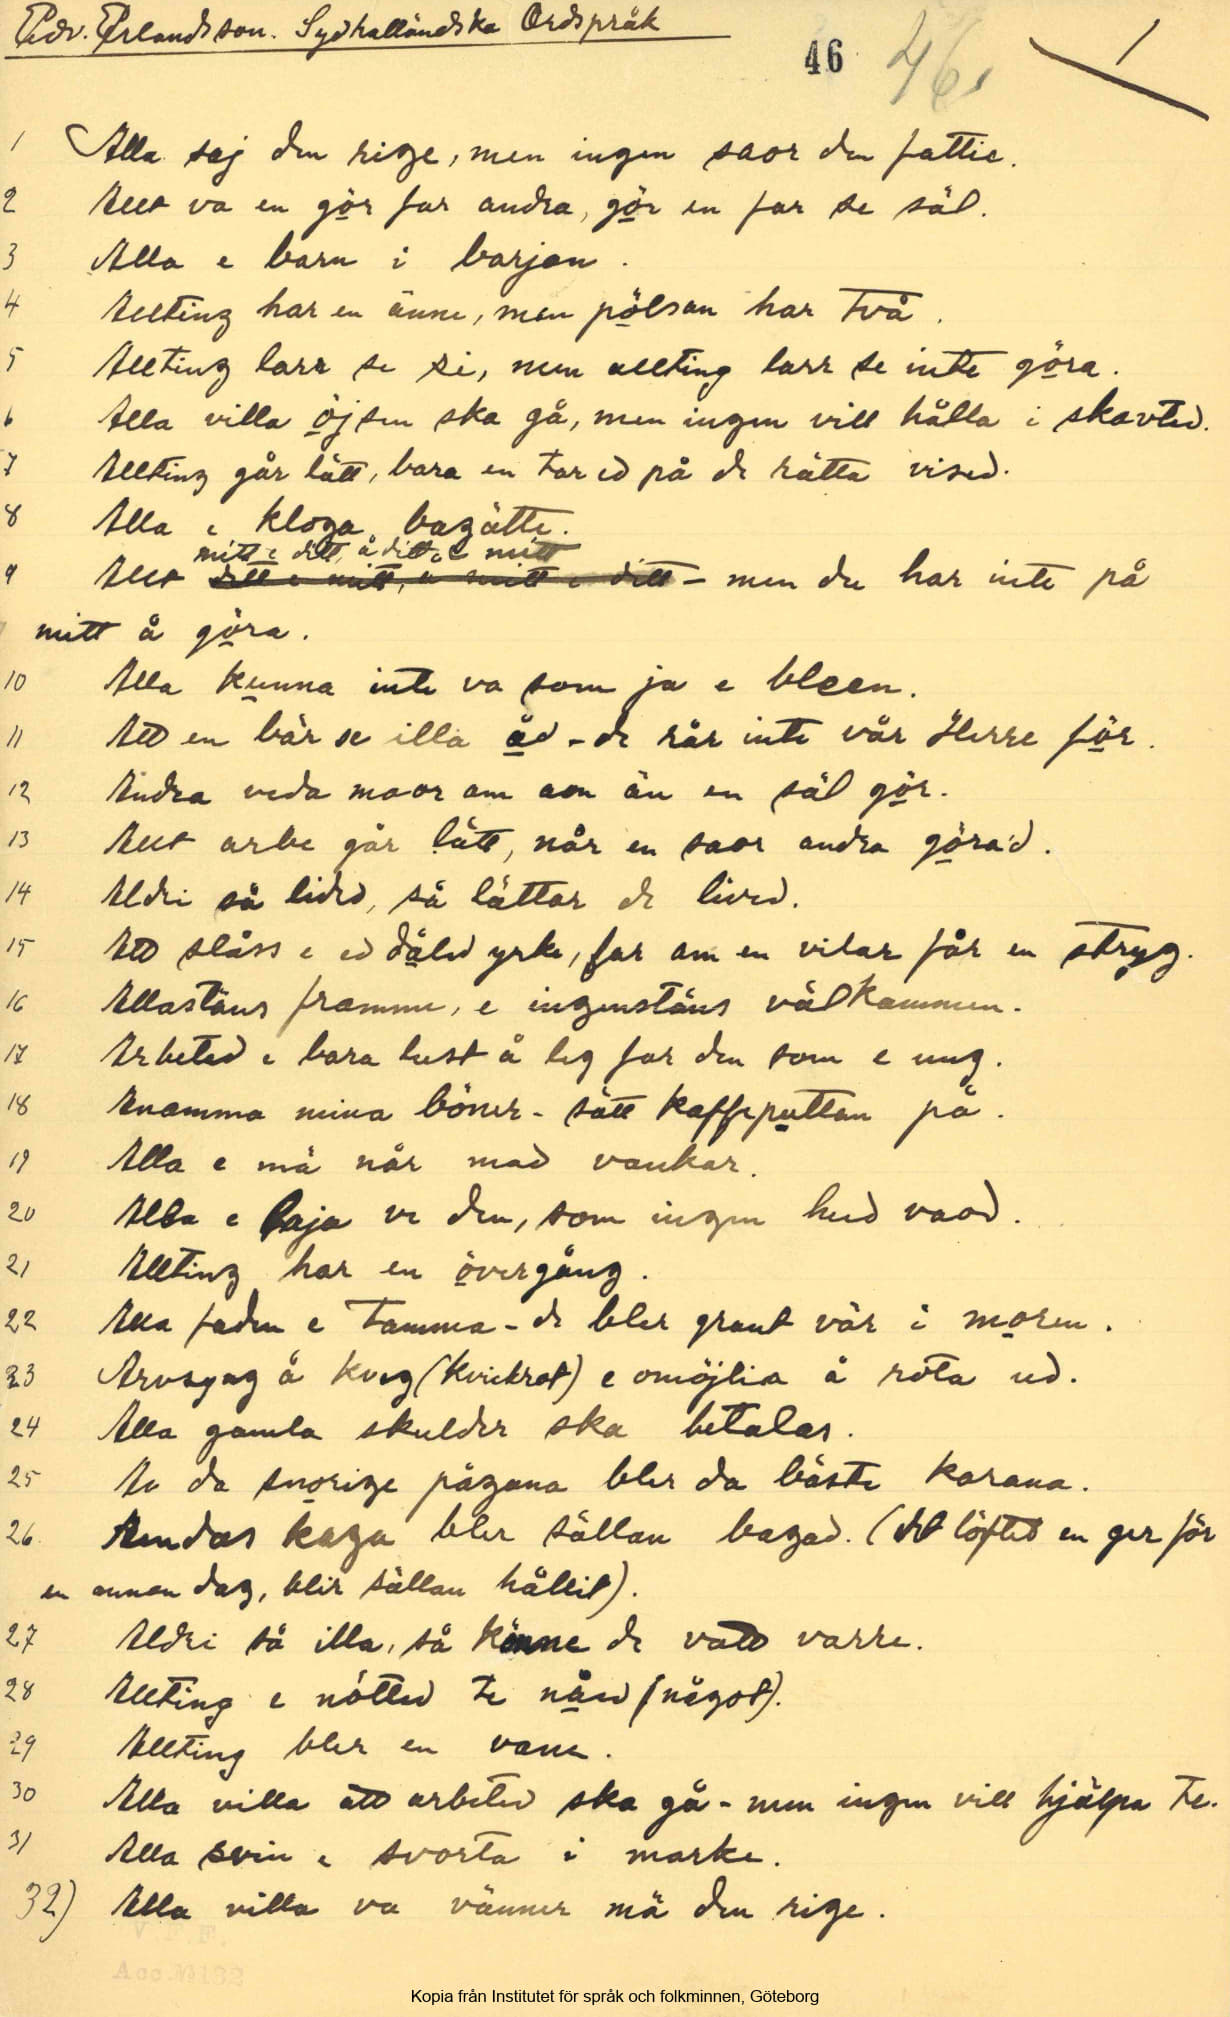 Edv. Erlandson. Sydhalländska Ordspråk
46 46. 1
1 Alla saj den rige, men ingen saor den fattie.
2 Allt va en gör far andra, gör en far se säl.
3 Alla e barn i barjan.
4 Allting har en änne, men pölsan har två.
5 Allting larr se si, men allting larr se inte göra.
6 Alla villa öjsen ska gå, men ingen vill hålla i skavted.
7 Allting går lätt, bara en tar ed på de rätta vised.
8 Alla e kloga bagätte.
mitt e ditt, å ditt e mitt
9 Allt ditt e mitt, å mitt e ditt - men du har inte på
mitt å göra.
10 Alla kunna inte va som ja e bleen.
11 Att en bär se illa åd - de rår inte vår Herre för.
12 Andra veda maor am aon än en säl gör.
13 Allt arbe går lätt, når en saor andra göra'd.
14 Aldri så lided, så lättar de lived.
15 Att slåss e ed dåled yrke, far am en vilar får en stryg.
16 Allastäns framme, e ingenstäns välkammen.
17 Arbeted e bara lust å leg far den som e ung.
18 Anamma mina böner - sätt kaffeputtan på.
19 Alla e mä når mad vankar.
20 Alla e laja ve den, som ingen hud vaod.
21 Allting har en övergång.
22 Alla faden e tamma - de bler grant vär i moren.
23 Arvsyng å kveg (kvickrot) e omöjlia å röta ud.
24 Alla gamla skulder ska betalas.
25 Av da snorige pågana bler da bäste karana.
26 Aendas kaga bler sällan bagad. (det löfted en ger för
en annan dag, blir sällan hållit).
27 Aldri så illa, så kunne de vatt varre.
28 Allting e nötted te nåed (något).
29 Allting bler en vane.
30 Alla villa att arbeted ska gå - men ingen vill hjälpa te.
31 Alla svin e svorta i marke.
32) Alla villa va vänner mä den rige.
V.F.F.
Acc. № 132
Kopia från Institutet för språk och folkminnen, Göteborg